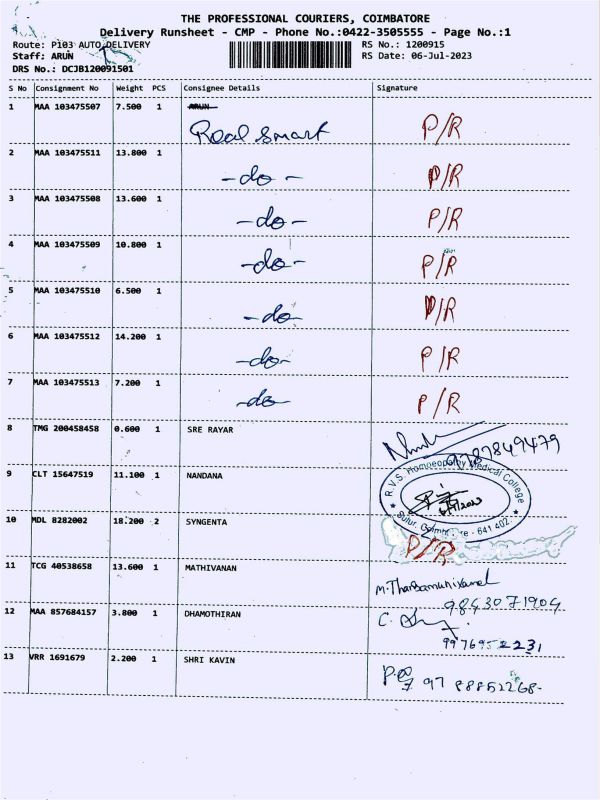 THE PROFESSIONAL COURIERS, COIMBATORE
Delivery Runsheet - CMP - Phone No.:0422-3505555 - Page No.:1
Route: P103 AUTO DELIVERY RS No.: 1200915
Staff: ARUN RS Date: 06-Jul-2023
DRS No.: DCJB120091501
S No Consignment No Weight PCS Consignee Details Signature
1 MAA 103475507 7.500 1 ARUN
Real smart P/R
2 MAA 103475511 13.800 1 -do- P/R
3 MAA 103475508 13.600 1 -do- P/R
4 MAA 103475509 10.800 1 -do- P/R
5 MAA 103475510 6.500 1 -do- P/R
6 MAA 103475512 14.200 1 -do- P/R
7 MAA 103475513 7.200 1 -do- P/R
8 TMG 200458458 0.600 1 SRE RAYAR 9787849479
9 CLT 15647519 11.100 1 NANDANA R.V.S. Homoeopathy Medical College
Sulur, Coimbatore - 641 402.
10 MDL 8282002 18.200 2 SYNGENTA P/R
11 TCG 40538658 13.600 1 MATHIVANAN
9843071904
12 MAA 857684157 3.800 1 DHAMOTHIRAN
9976952231
13 VRR 1691679 2.200 1 SHRI KAVIN 97 88852268